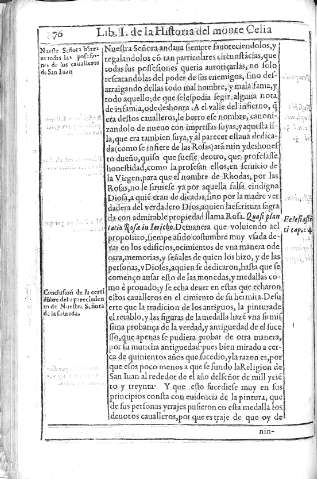 76 Lib. I. de la Historia del monte Celia
Nuestra Señora hõrra
a todas las posesiones
de los cavalleros
de San Iuan
Nuestra Señora andaua siempre fauoreciendolos, y
regalandolos cõ tan particulares circunstãcias, que
todas sus possesiones queria autorizarlas, no solo
rescatandolas del poder de sus enemigos, sino desarraigando
dellas todo mal nombre, y mala fama, y
todo aquello, de que se les podia seguir alguna nota
de infamia, o deshonra. A el valle del infierno, q̃
era destos caualleros, le borro esse nombre, canonizandolo
de nueuo con impressas suyas, y aquesta isla,
que era tambien suya, y al parecer estaua dedicada
(como se infiere de las Rosas) à tã ruin y deshonesto
dueño, quiso que fuesse decoro, que professasse
honestidad, como la professan ellos, en seruicio de
la Virgen, para que el nombre de Rhodas, por las
Rosas, no le siruiesse ya por aquella falsa e indigna
Diosa, a quiẽ eran dedicadas, sino por la madre verdadera
del verdadero Dios, a quien la escritura sagrada
con admirable propiedad llama Rosa. Quasi plantatio
Rosæ in Iericho. De manera que voluiendo al
proposito, siempre ha sido costumbre muy vsada dexar
en los edificios, o cimientos de vna manera o de
otra, memorias, y señales de quien los hizo, y de las
personas, y Dioses, a quien se dedicaron, hasta que se
començo a usar esso de las monedas, y medallas como
è prouado, y se echa de ver en estas que echaron
estos caualleros en el cimiento de su hermita. De suerte
que la tradicion de los antiguos, la pintura de
el retablo, y las figuras de la medalla hazẽ vna firmissima
probança de la verdad, y antiguedad de el sucesso,
que apenas se pudiera probar de otra manera,
por su mucha antiguedad, pues bien mirado a cerca
de quinientos años que sucedio, y la razon es, porque
essos poco menos a que se fundo la Religion de
San Iuan al rededor de el año del señor de mil y ciento
y treynta. Y que esto sucediesse muy en sus
principios consta con euidencia de la pintura, que
de sus personas y trajes pusieron en esta medalla los
deuotos caualleros, porque es traje de que oy de
Ecclesiasti
ci cap. 24
de nuestra Señora
de la salceda.
nin-